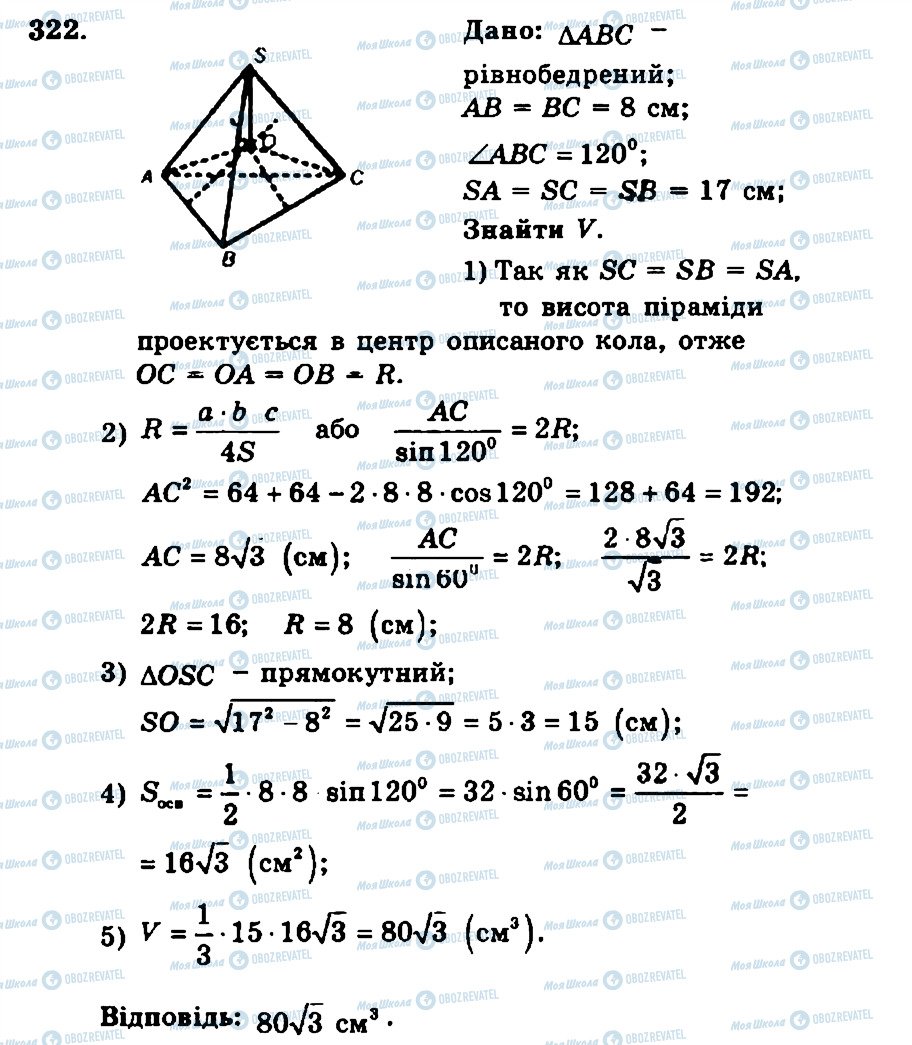 322.
Дано: △ABC –
рівнобедрений;
AB = BC = 8 см;
∠ABC = 120⁰;
SA = SC = SB = 17 см;
Знайти V.
S
O
A
C
B
1) Так як SC = SB = SA,
то висота піраміди
проектується в центр описаного кола, отже
OC = OA = OB = R.
2) R = a · b c / 4S або AC / sin 120⁰ = 2R;
AC² = 64 + 64 – 2 · 8 · 8 · cos 120⁰ = 128 + 64 = 192;
AC = 8√3 (см); AC / sin 60⁰ = 2R; 2 · 8√3 / √3 = 2R;
2R = 16; R = 8 (см);
3) △OSC – прямокутний;
SO = √(17² – 8²) = √(25 · 9) = 5 · 3 = 15 (см);
4) Sосн = 1/2 · 8 · 8 · sin 120⁰ = 32 · sin 60⁰ = 32 · √3 / 2 =
= 16√3 (см²);
5) V = 1/3 · 15 · 16√3 = 80√3 (см³).
Відповідь: 80√3 см³.
Моя Школа OBOZREVATEL